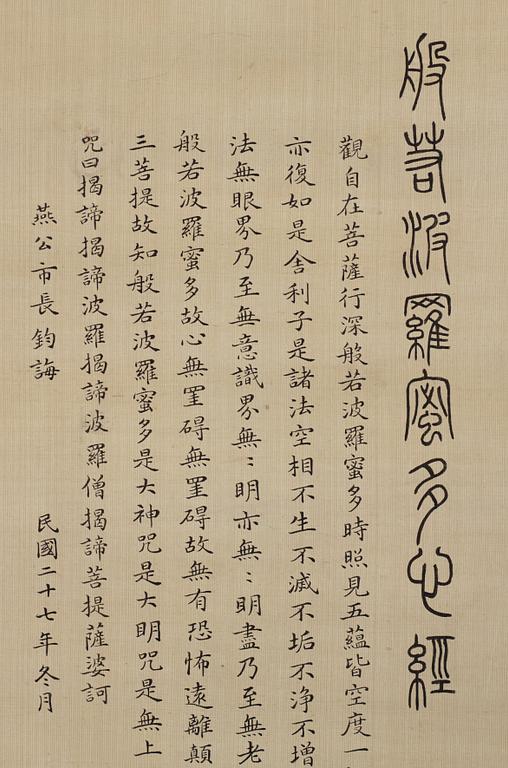 般若波羅蜜多心經
觀自在菩薩行深般若波羅蜜多時照見五蘊皆空度一
亦復如是舍利子是諸法空相不生不滅不垢不淨不增
法無眼界乃至無意識界無〻明亦無〻明盡乃至無老
般若波羅蜜多故心無罣碍無罣碍故無有恐怖遠離顛
三菩提故知般若波羅蜜多是大神咒是大明咒是無上
咒曰揭諦揭諦波羅揭諦波羅僧揭諦菩提薩婆訶
燕公市長鈞誨
民國二十七年冬月